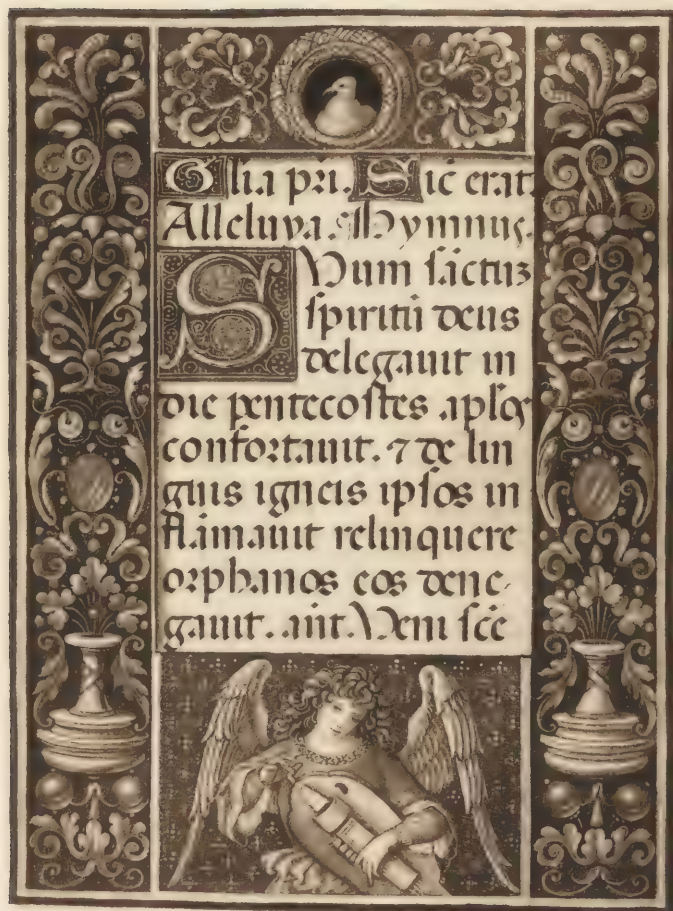 Gl̄ia pr̄i. Sic̄ erat.
Alleluya. Hymnus.
SVum sāctuz
spiritū deus
delegauit in
die pentecostes apl̄os
confortauit. ⁊ de lin
guis igneis ipsos in
flamauit relinquere
orphanos eos dene-
gauit. an̄t. Veni scē